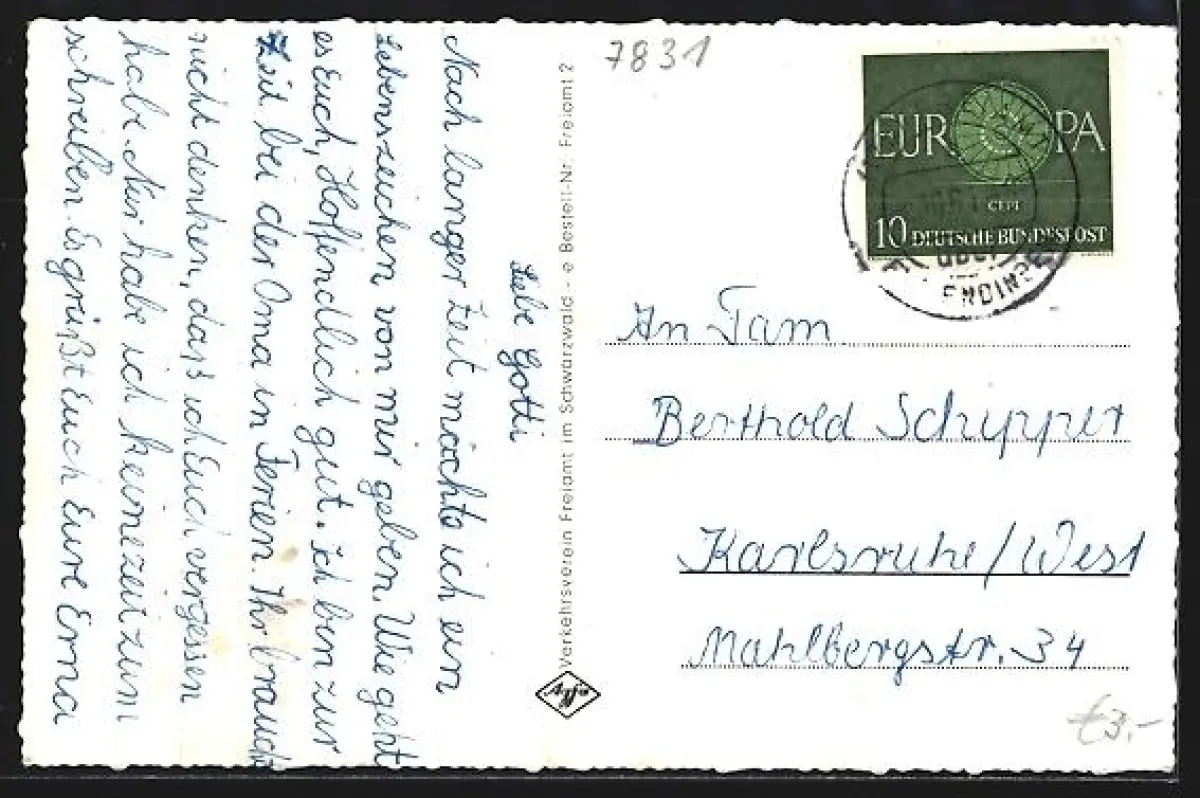 7831
EUROPA
CEPT
10 DEUTSCHE BUNDESPOST
ENDINGEN
Lebe Gotti
Nach langer Zeit möchte ich ein
Lebenszeichen von mir geben. Wie geht
es Euch, Hoffendlich gut. Ich ben zur
Zeit bei der Oma in Ferien. Ihr braucht
nicht denken, das ich Euch vergessen
habe. Nur habe ich keine zeit zum
schreiben. Es grüßt Euch Eure Erna
Verkehrsverein Freiamt im Schwarzwald - e Bestell-Nr. Freiamt 2
An Fam
Berthold Schipper
Karlsruhe/West
Mahlbergstr. 34
€3.-